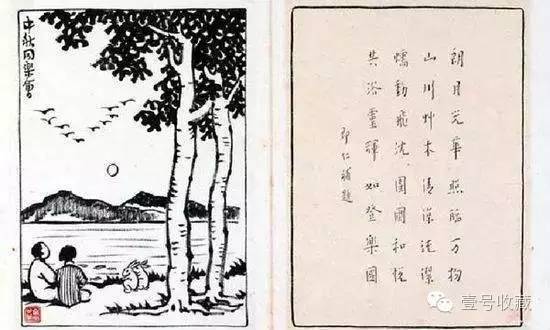 中秋同樂會
朗月光華照臨万物
山川艸木清涼純潔
蠕動飛沈團圞和悅
共浴靈輝如登樂園
即仁補題
壹号收藏